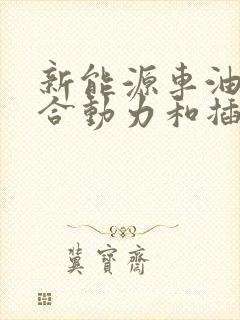 新能源车油
合动力和插
冀寶齋